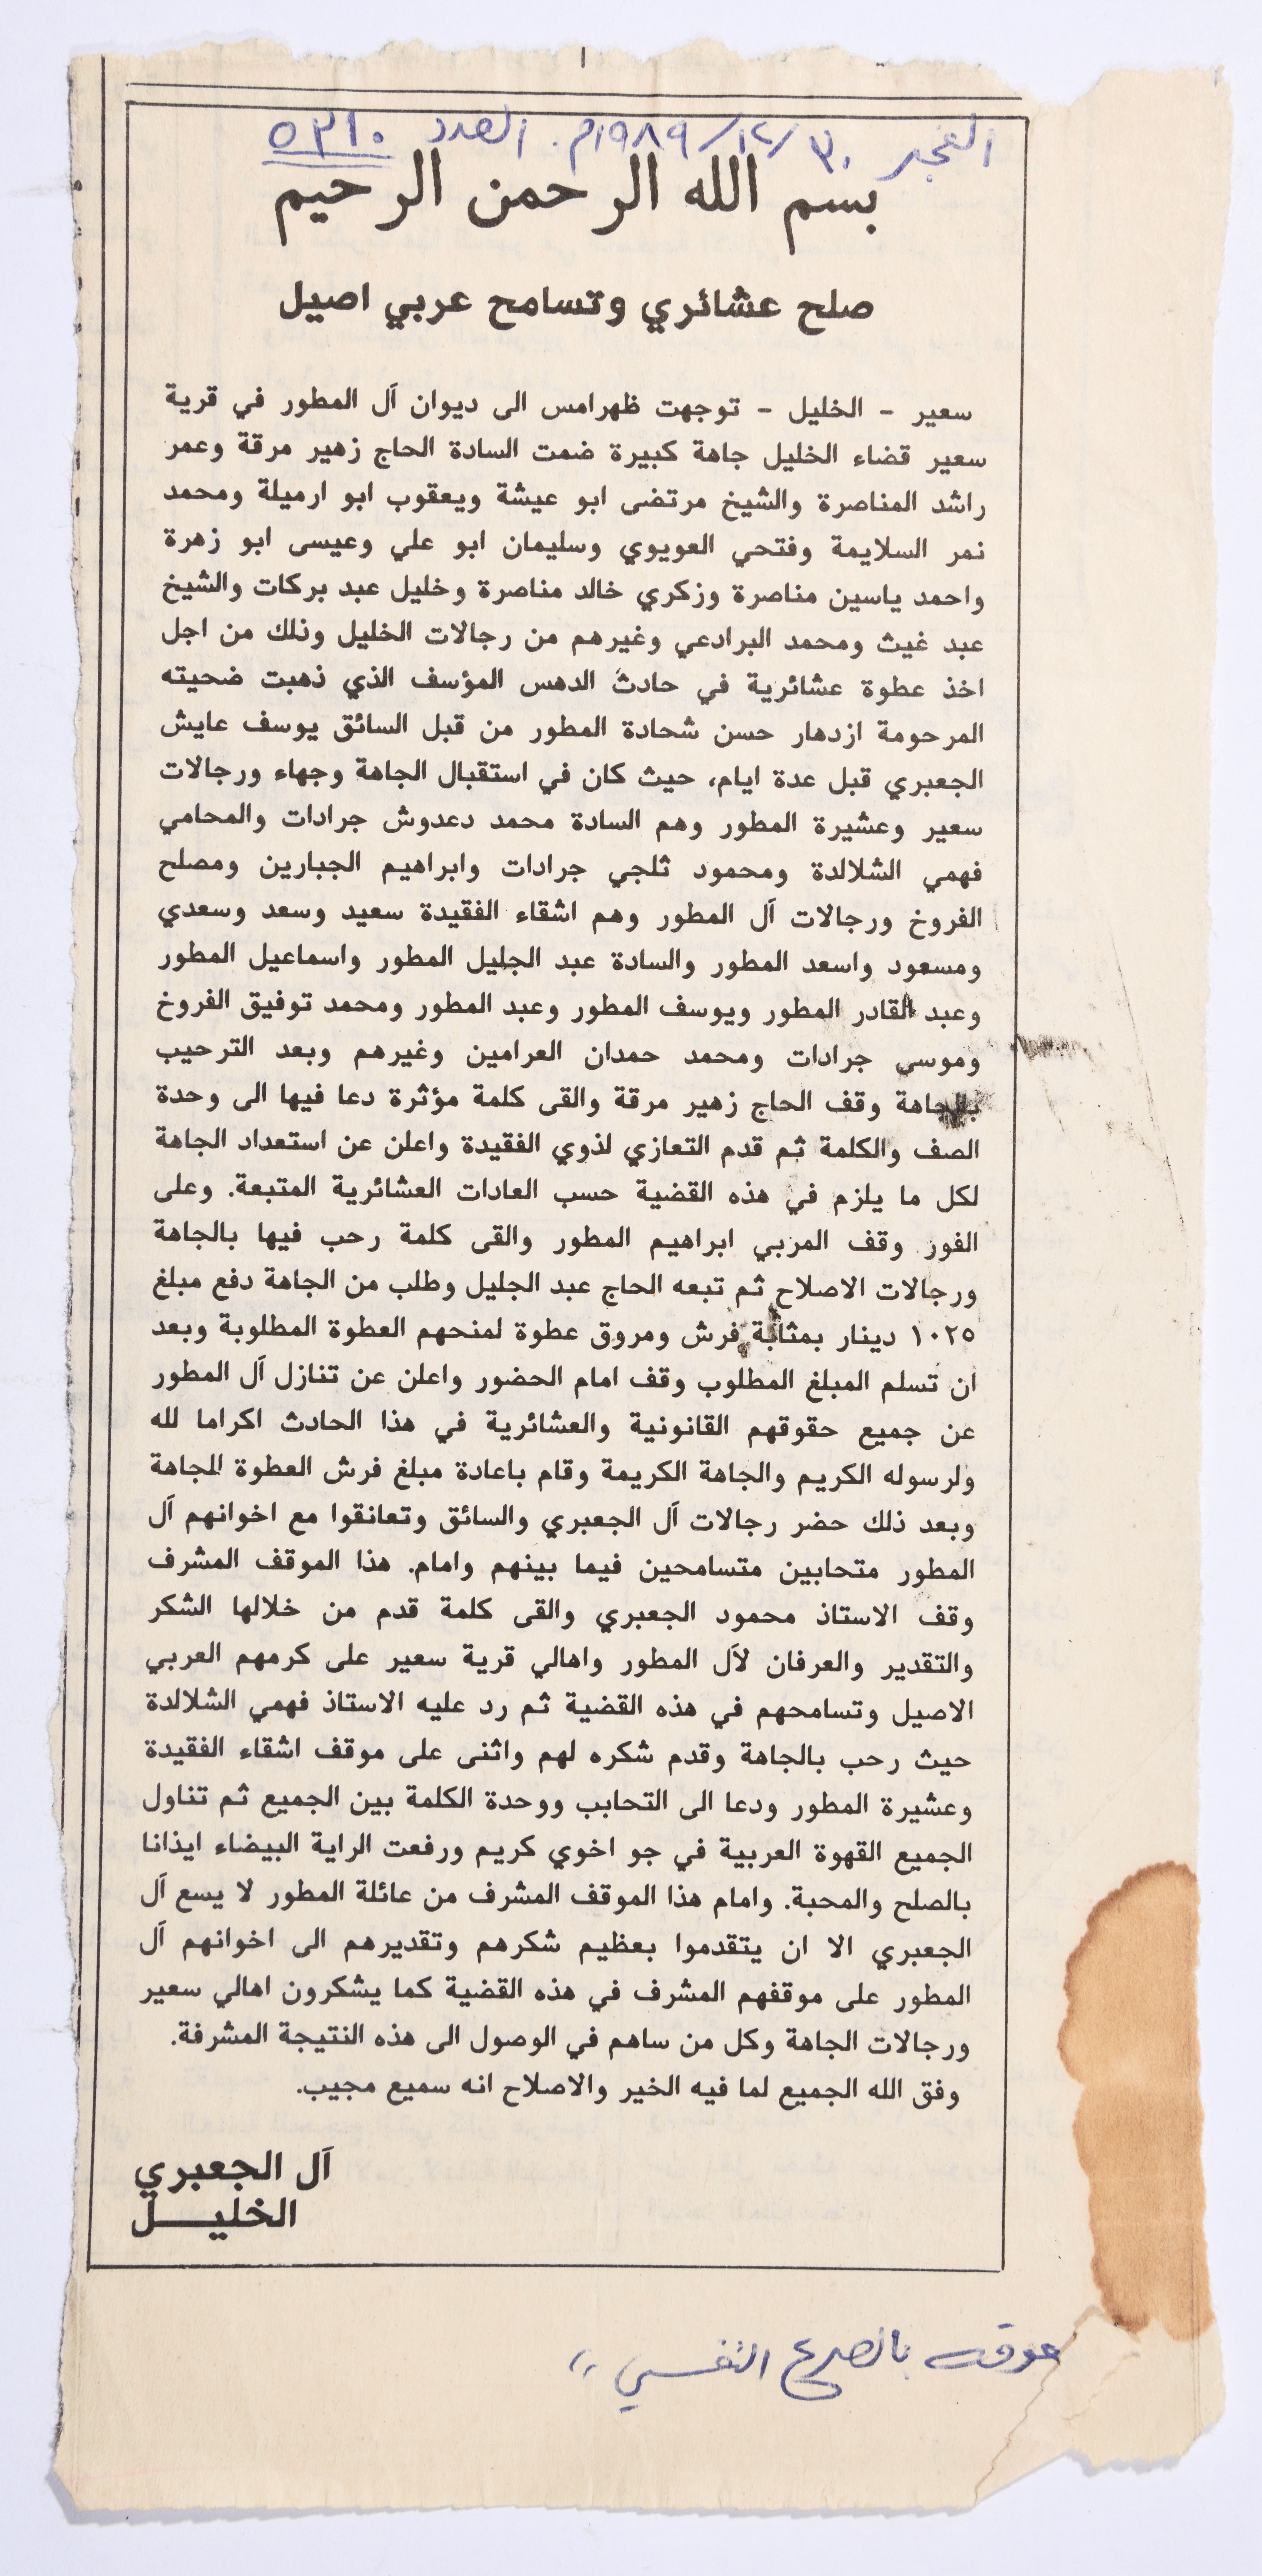 الفجر ٣٠/١٢/١٩٨٩م. العدد ٥٣١٠
بسم الله الرحمن الرحيم
صلح عشائري وتسامح عربي اصيل
سعير - الخليل - توجهت ظهرامس الى ديوان آل المطور في قرية
سعير قضاء الخليل جاهة كبيرة ضمت السادة الحاج زهير مرقة وعمر
راشد المناصرة والشيخ مرتضى ابو عيشة ويعقوب ابو ارميلة ومحمد
نمر السلايمة وفتحي العويوي وسليمان ابو علي وعيسى ابو زهرة
واحمد ياسين مناصرة وزكري خالد مناصرة وخليل عبد بركات والشيخ
عبد غيث ومحمد البرادعي وغيرهم من رجالات الخليل وذلك من اجل
اخذ عطوة عشائرية في حادث الدهس المؤسف الذي ذهبت ضحيته
المرحومة ازدهار حسن شحادة المطور من قبل السائق يوسف عايش
الجعبري قبل عدة ايام، حيث كان في استقبال الجاهة وجهاء ورجالات
سعير وعشيرة المطور وهم السادة محمد دعدوش جرادات والمحامي
فهمي الشلالدة ومحمود ثلجي جرادات وابراهيم الجبارين ومصلح
الفروخ ورجالات آل المطور وهم اشقاء الفقيدة سعيد وسعد وسعدي
ومسعود واسعد المطور والسادة عبد الجليل المطور واسماعيل المطور
وعبد القادر المطور ويوسف المطور وعبد المطور ومحمد توفيق الفروخ
وموسى جرادات ومحمد حمدان العرامين وغيرهم وبعد الترحيب
بالجاهة وقف الحاج زهير مرقة والقى كلمة مؤثرة دعا فيها الى وحدة
الصف والكلمة ثم قدم التعازي لذوي الفقيدة واعلن عن استعداد الجاهة
لكل ما يلزم في هذه القضية حسب العادات العشائرية المتبعة. وعلى
الفور وقف المربي ابراهيم المطور والقى كلمة رحب فيها بالجاهة
ورجالات الاصلاح ثم تبعه الحاج عبد الجليل وطلب من الجاهة دفع مبلغ
١٠٢٥ دينار بمثابة فرش ومروق عطوة لمنحهم العطوة المطلوبة وبعد
ان تسلم المبلغ المطلوب وقف امام الحضور واعلن عن تنازل آل المطور
عن جميع حقوقهم القانونية والعشائرية في هذا الحادث اكراما لله
ولرسوله الكريم والجاهة الكريمة وقام باعادة مبلغ فرش العطوة للجاهة
وبعد ذلك حضر رجالات آل الجعبري والسائق وتعانقوا مع اخوانهم آل
المطور متحابين متسامحين فيما بينهم وامام. هذا الموقف المشرف
وقف الاستاذ محمود الجعبري والقى كلمة قدم من خلالها الشكر
والتقدير والعرفان لآل المطور واهالي قرية سعير على كرمهم العربي
الاصيل وتسامحهم في هذه القضية ثم رد عليه الاستاذ فهمي الشلالدة
حيث رحب بالجاهة وقدم شكره لهم واثنى على موقف اشقاء الفقيدة
وعشيرة المطور ودعا الى التحابب ووحدة الكلمة بين الجميع ثم تناول
الجميع القهوة العربية في جو اخوي كريم ورفعت الراية البيضاء ايذانا
بالصلح والمحبة. وامام هذا الموقف المشرف من عائلة المطور لا يسع آل
الجعبري الا ان يتقدموا بعظيم شكرهم وتقديرهم الى اخوانهم آل
المطور على موقفهم المشرف في هذه القضية كما يشكرون اهالي سعير
ورجالات الجاهة وكل من ساهم في الوصول الى هذه النتيجة المشرفة.
وفق الله الجميع لما فيه الخير والاصلاح انه سميع مجيب.
آل الجعبري
الخليـــل